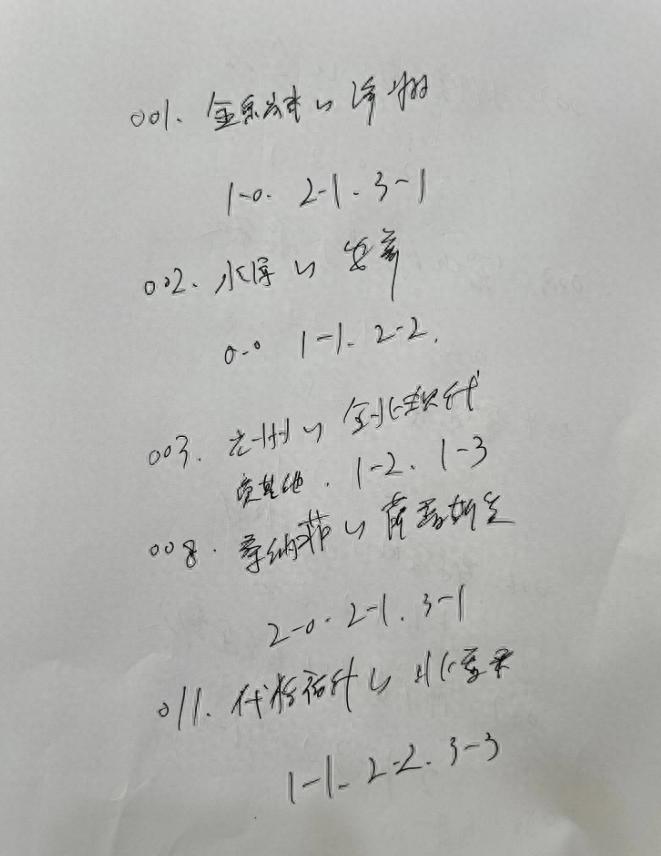 001. 金泉尚武 vs 济州
1-0. 2-1. 3-1
002. 水原 vs 安养
0-0 1-1. 2-2.
003. 光州 vs 全北现代
负其他. 1-2. 1-3
008. 桑纳菲 vs
2-0. 2-1. 3-1
011. vs
1-1. 2-2. 3-3